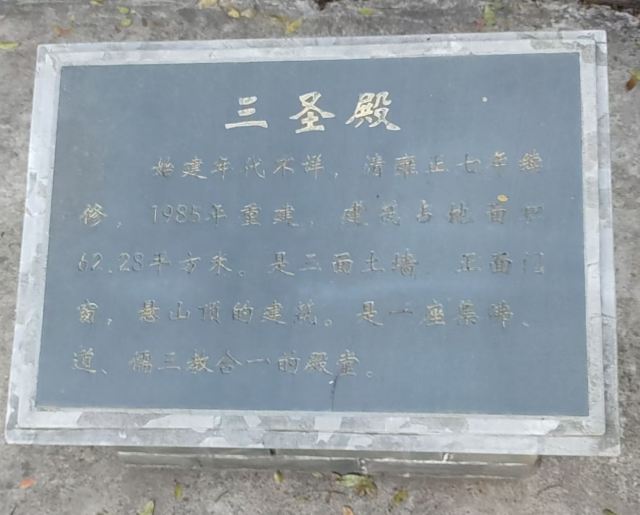 三圣殿
始建年代不详，清雍正七年续
修，1985年重建，建筑占地面积
62.28平方米。是三面土墙，正面门
窗，悬山顶的建筑。是一座集佛、
道、儒三教合一的殿堂。